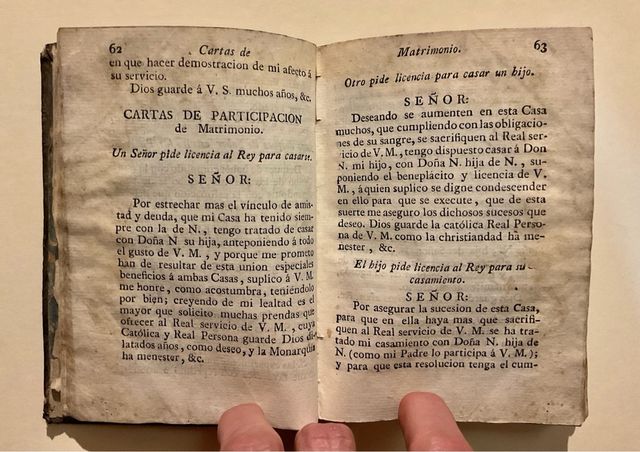 62 Cartas de
en que hacer demostracion de mi afecto á
su servicio.
Dios guarde á V. S. muchos años, &c.
CARTAS DE PARTICIPACION
de Matrimonio.
Un Señor pide licencia al Rey para casarse.
SEÑOR:
Por estrechar mas el vínculo de amis-
tad y deuda, que mi Casa ha tenido siem-
pre con la de N., tengo tratado de casar
con Doña N su hija, anteponiendo á todo
el gusto de V. M., y porque me prometo
han de resultar de esta union especiales
beneficios á ambas Casas, suplico á V. M
me honre, como acostumbra, teniéndolo
por bien; creyendo de mi lealtad es el
mayor que solicito muchas prendas que
ofrecer al Real servicio de V. M., cuya
Católica y Real Persona guarde Dios di-
latados años, como deseo, y la Monarquía
ha menester, &c.
Matrimonio. 63
Otro pide licencia para casar un hijo.
SEÑOR:
Deseando se aumenten en esta Casa
muchos, que cumpliendo con las obligacio-
nes de su sangre, se sacrifiquen al Real ser-
vicio de V. M., tengo dispuesto casar á Don
N. mi hijo, con Doña N. hija de N., su-
poniendo el beneplácito y licencia de V.
M., á quien suplico se digne condescender
en ello para que se execute, que de esta
suerte me aseguro los dichosos sucesos que
deseo. Dios guarde la católica Real Perso-
na de V. M. como la christiandad ha me-
nester, &c.
El hijo pide licencia al Rey para su
casamiento.
SEÑOR:
Por asegurar la sucesion de esta Casa,
para que en ella haya mas que sacrifi-
quen al Real servicio de V. M. se ha tra-
tado mi casamiento con Doña N. hija de
N. (como mi Padre lo participa á V. M.);
y para que esta resolucion tenga el cum-